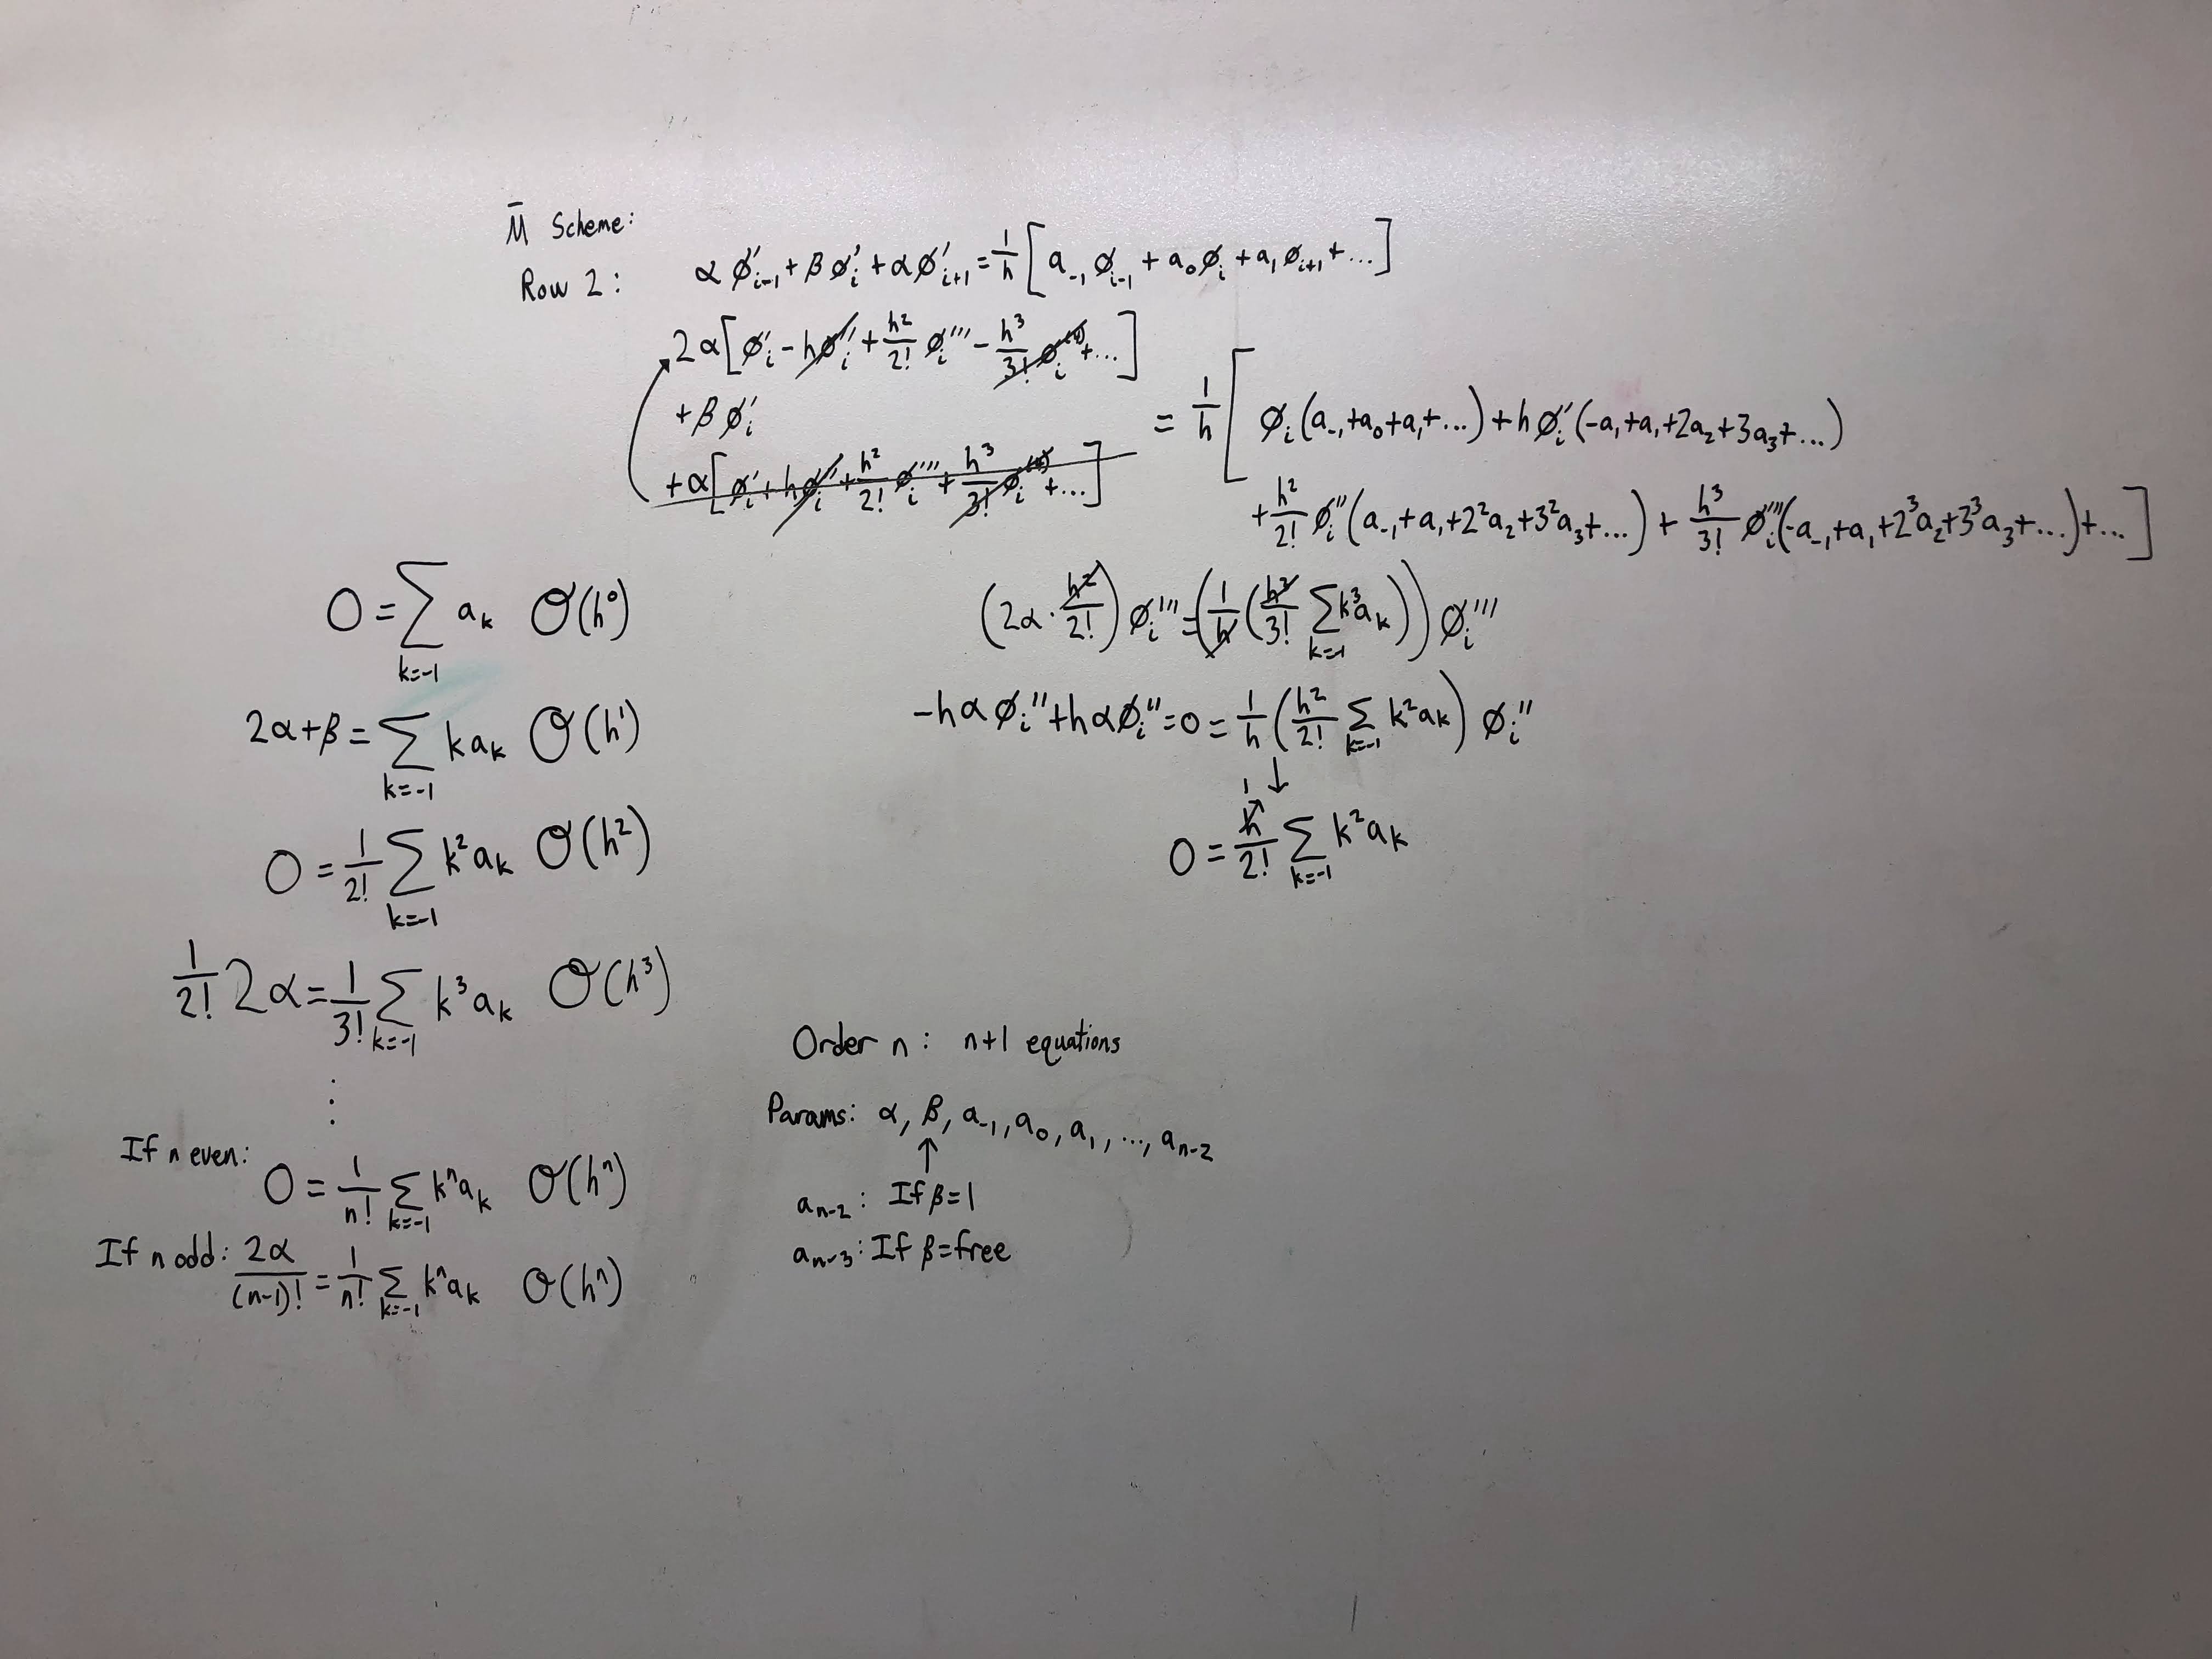 M̄ Scheme:
Row 2: αϕ'ᵢ₋₁ + βϕ'ᵢ + αϕ'ᵢ₊₁ = 1/h [a₋₁ϕᵢ₋₁ + a₀ϕᵢ + a₁ϕᵢ₊₁ + ...]
2α[ϕ'ᵢ - hϕ''ᵢ + h²/2! ϕ'''ᵢ - h³/3! ϕᵢ⁽⁴⁾ + ...]
+ βϕ'ᵢ
+ α[ϕ'ᵢ + hϕ''ᵢ + h²/2! ϕ'''ᵢ + h³/3! ϕᵢ⁽⁴⁾ + ...]
= 1/h [ϕᵢ(a₋₁ + a₀ + a₁ + ...) + hϕ'ᵢ(-a₁ + a₁ + 2a₂ + 3a₃ + ...)
+ h²/2! ϕ''ᵢ(a₋₁ + a₁ + 2²a₂ + 3²a₃ + ...) + h³/3! ϕ'''ᵢ(-a₋₁ + a₁ + 2³a₂ + 3³a₃ + ...) + ...]
0 = ∑ₖ₌₋₁ aₖ O(h⁰)
2α + β = ∑ₖ₌₋₁ kaₖ O(h¹)
0 = 1/2! ∑ₖ₌₋₁ k²aₖ O(h²)
1/2! 2α = 1/3! ∑ₖ₌₋₁ k³aₖ O(h³)
⋮
If n even: 0 = 1/n! ∑ₖ₌₋₁ kⁿaₖ O(hⁿ)
If n odd: 2α/(n-1)! = 1/n! ∑ₖ₌₋₁ kⁿaₖ O(hⁿ)
(2α · h²/2!) ϕᵢ''' = (1/h (h³/3! ∑ₖ₌₋₁ k³aₖ)) ϕᵢ'''
-hαϕᵢ'' + hαϕᵢ'' = 0 = 1/h (h²/2! ∑ₖ₌₋₁ k²aₖ) ϕᵢ''
1 ↓
0 = h/2! ∑ₖ₌₋₁ k²aₖ
Order n: n+1 equations
Params: α, β, a₋₁, a₀, a₁, ..., aₙ₋₂
↑
aₙ₋₂: If β=1
aₙ₋₃: If β=free